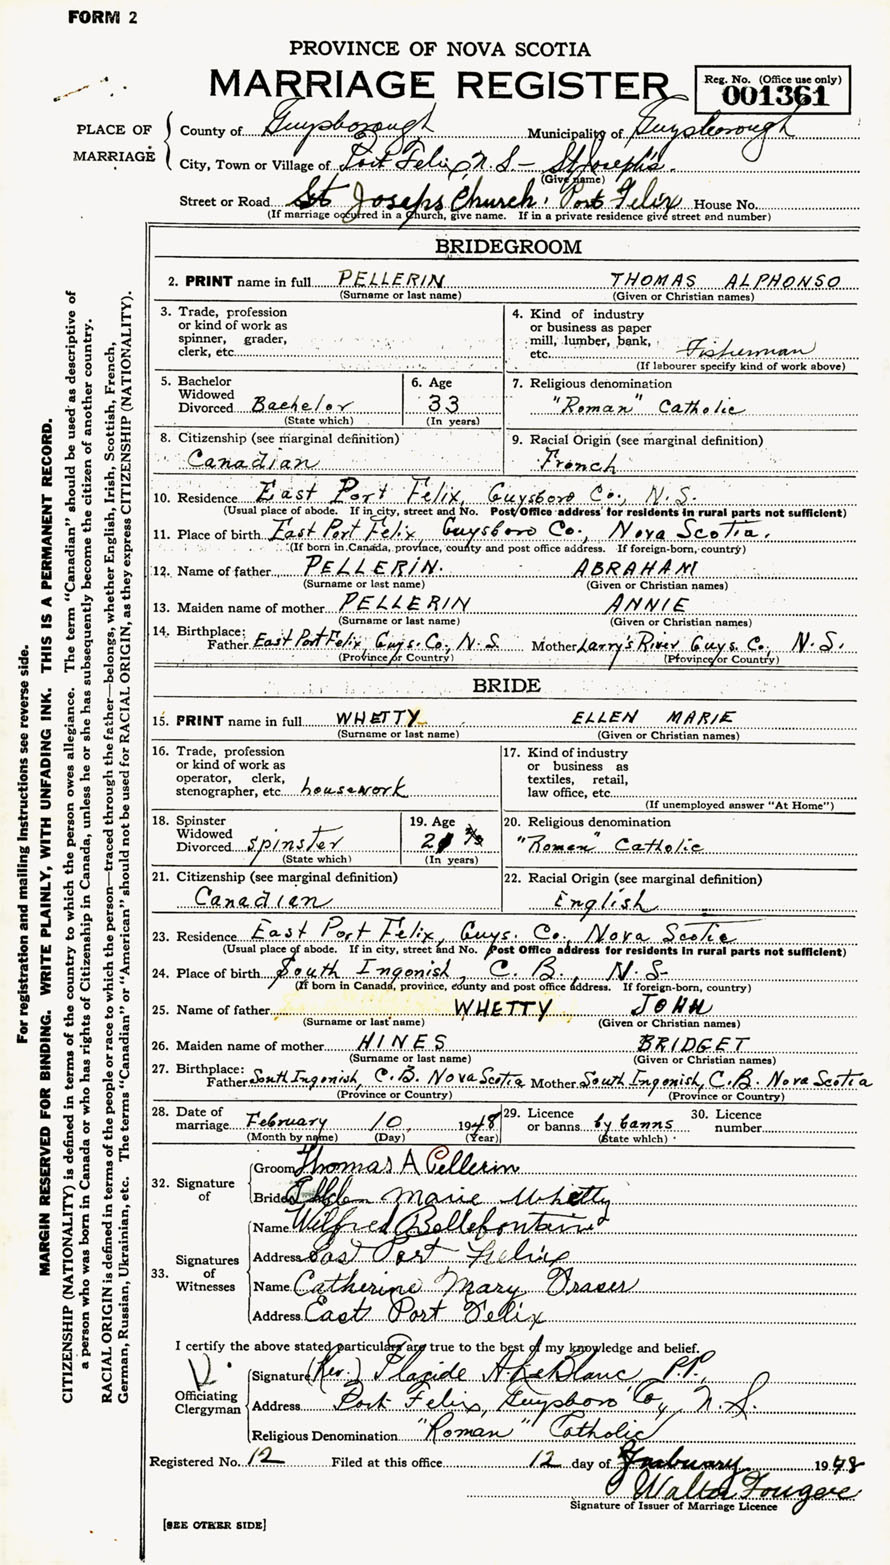 FORM 2
PROVINCE OF NOVA SCOTIA
MARRIAGE REGISTER
Reg. No. (Office use only)
001361
PLACE OF MARRIAGE
County of Guysborough Municipality of Guysborough
City, Town or Village of Port Felix, N.S - St Joseph's.
(Give name)
Street or Road St Josephs Church, Port Felix House No.
(If marriage occurred in a Church, give name. If in a private residence give street and number)
BRIDEGROOM
2. PRINT name in full PELLERIN THOMAS ALPHONSO
(Surname or last name) (Given or Christian names)
3. Trade, profession
or kind of work as
spinner, grader,
clerk, etc.
4. Kind of industry
or business as paper
mill, lumber, bank,
etc. Fisherman
(If labourer specify kind of work above)
5. Bachelor
Widowed
Divorced Bachelor
(State which)
6. Age
33
(In years)
7. Religious denomination
"Roman" Catholic
8. Citizenship (see marginal definition)
Canadian
9. Racial Origin (see marginal definition)
French
10. Residence East Port Felix, Guysboro Co., N.S.
(Usual place of abode. If in city, street and No. Post Office address for residents in rural parts not sufficient)
11. Place of birth East Port Felix, Guysboro Co., Nova Scotia.
(If born in Canada, province, county and post office address. If foreign-born, country)
12. Name of father PELLERIN. ABRAHAM
(Surname or last name) (Given or Christian names)
13. Maiden name of mother PELLERIN ANNIE
(Surname or last name) (Given or Christian names)
14. Birthplace:
Father East Port Felix, Guys. Co., N.S. Mother Larry's River Guys. Co., N.S.
(Province or Country) (Province or Country)
BRIDE
15. PRINT name in full WHETTY ELLEN MARIE
(Surname or last name) (Given or Christian names)
16. Trade, profession
or kind of work as
operator, clerk,
stenographer, etc. housework
17. Kind of industry
or business as
textiles, retail,
law office, etc.
(If unemployed answer "At Home")
18. Spinster
Widowed
Divorced spinster
(State which)
19. Age
(In years)
20. Religious denomination
"Roman" Catholic
21. Citizenship (see marginal definition)
Canadian
22. Racial Origin (see marginal definition)
English
23. Residence East Port Felix, Guys. Co. Nova Scotia
(Usual place of abode. If in city, street and No. Post Office address for residents in rural parts not sufficient)
24. Place of birth South Ingonish, C. B., N. S-
(If born in Canada, province, county and post office address. If foreign-born, country)
25. Name of father WHETTY JOHN
(Surname or last name) (Given or Christian names)
26. Maiden name of mother HINES BRIDGET
(Surname or last name) (Given or Christian names)
27. Birthplace:
Father South Ingonish, C.B. Nova Scotia Mother South Ingonish, C.B. Nova Scotia
(Province or Country) (Province or Country)
28. Date of
marriage February 10, 1948
(Month by name) (Day) (Year)
29. Licence
or banns by banns
(State which)
30. Licence
number
32. Signature of
Groom Thomas A Pellerin
Bride Ellen Marie Whetty
33. Signatures of Witnesses
Name Wilfred Bellefontaine
Address East Port Felix
Name Catherine Mary Fraser
Address East Port Felix
I certify the above stated particulars are true to the best of my knowledge and belief.
Officiating Clergyman
Signature (Rev.) Placide A. LeBlanc P.P.,
Address Port Felix, Guysboro Co, N.S.
Religious Denomination "Roman" Catholic
Registered No. 12 Filed at this office 12 day of February 1948
Walter Fougere
Signature of Issuer of Marriage Licence
[SEE OTHER SIDE]
For registration and mailing instructions see reverse side.
MARGIN RESERVED FOR BINDING. WRITE PLAINLY, WITH UNFADING INK. THIS IS A PERMANENT RECORD.
CITIZENSHIP (NATIONALITY) is defined in terms of the country to which the person owes allegiance. The term "Canadian" should be used as descriptive of
a person who was born in Canada or who has rights of Citizenship in Canada, unless he or she has subsequently become the citizen of another country.
RACIAL ORIGIN is defined in terms of the people or race to which the person—traced through the father—belongs, whether English, Irish, Scottish, French,
German, Russian, Ukrainian, etc. The terms "Canadian" or "American" should not be used for RACIAL ORIGIN, as they express CITIZENSHIP (NATIONALITY).